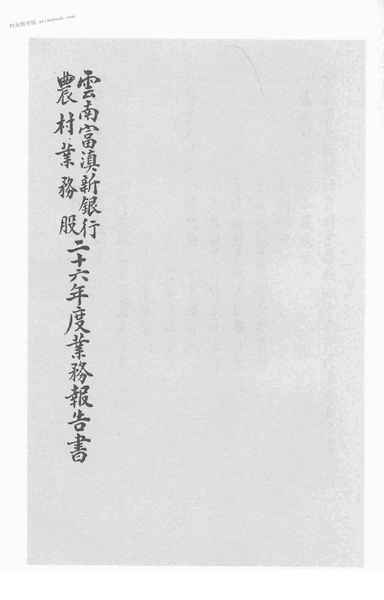 雲南富滇新銀行
農村業務股
二十六年度業務報告書